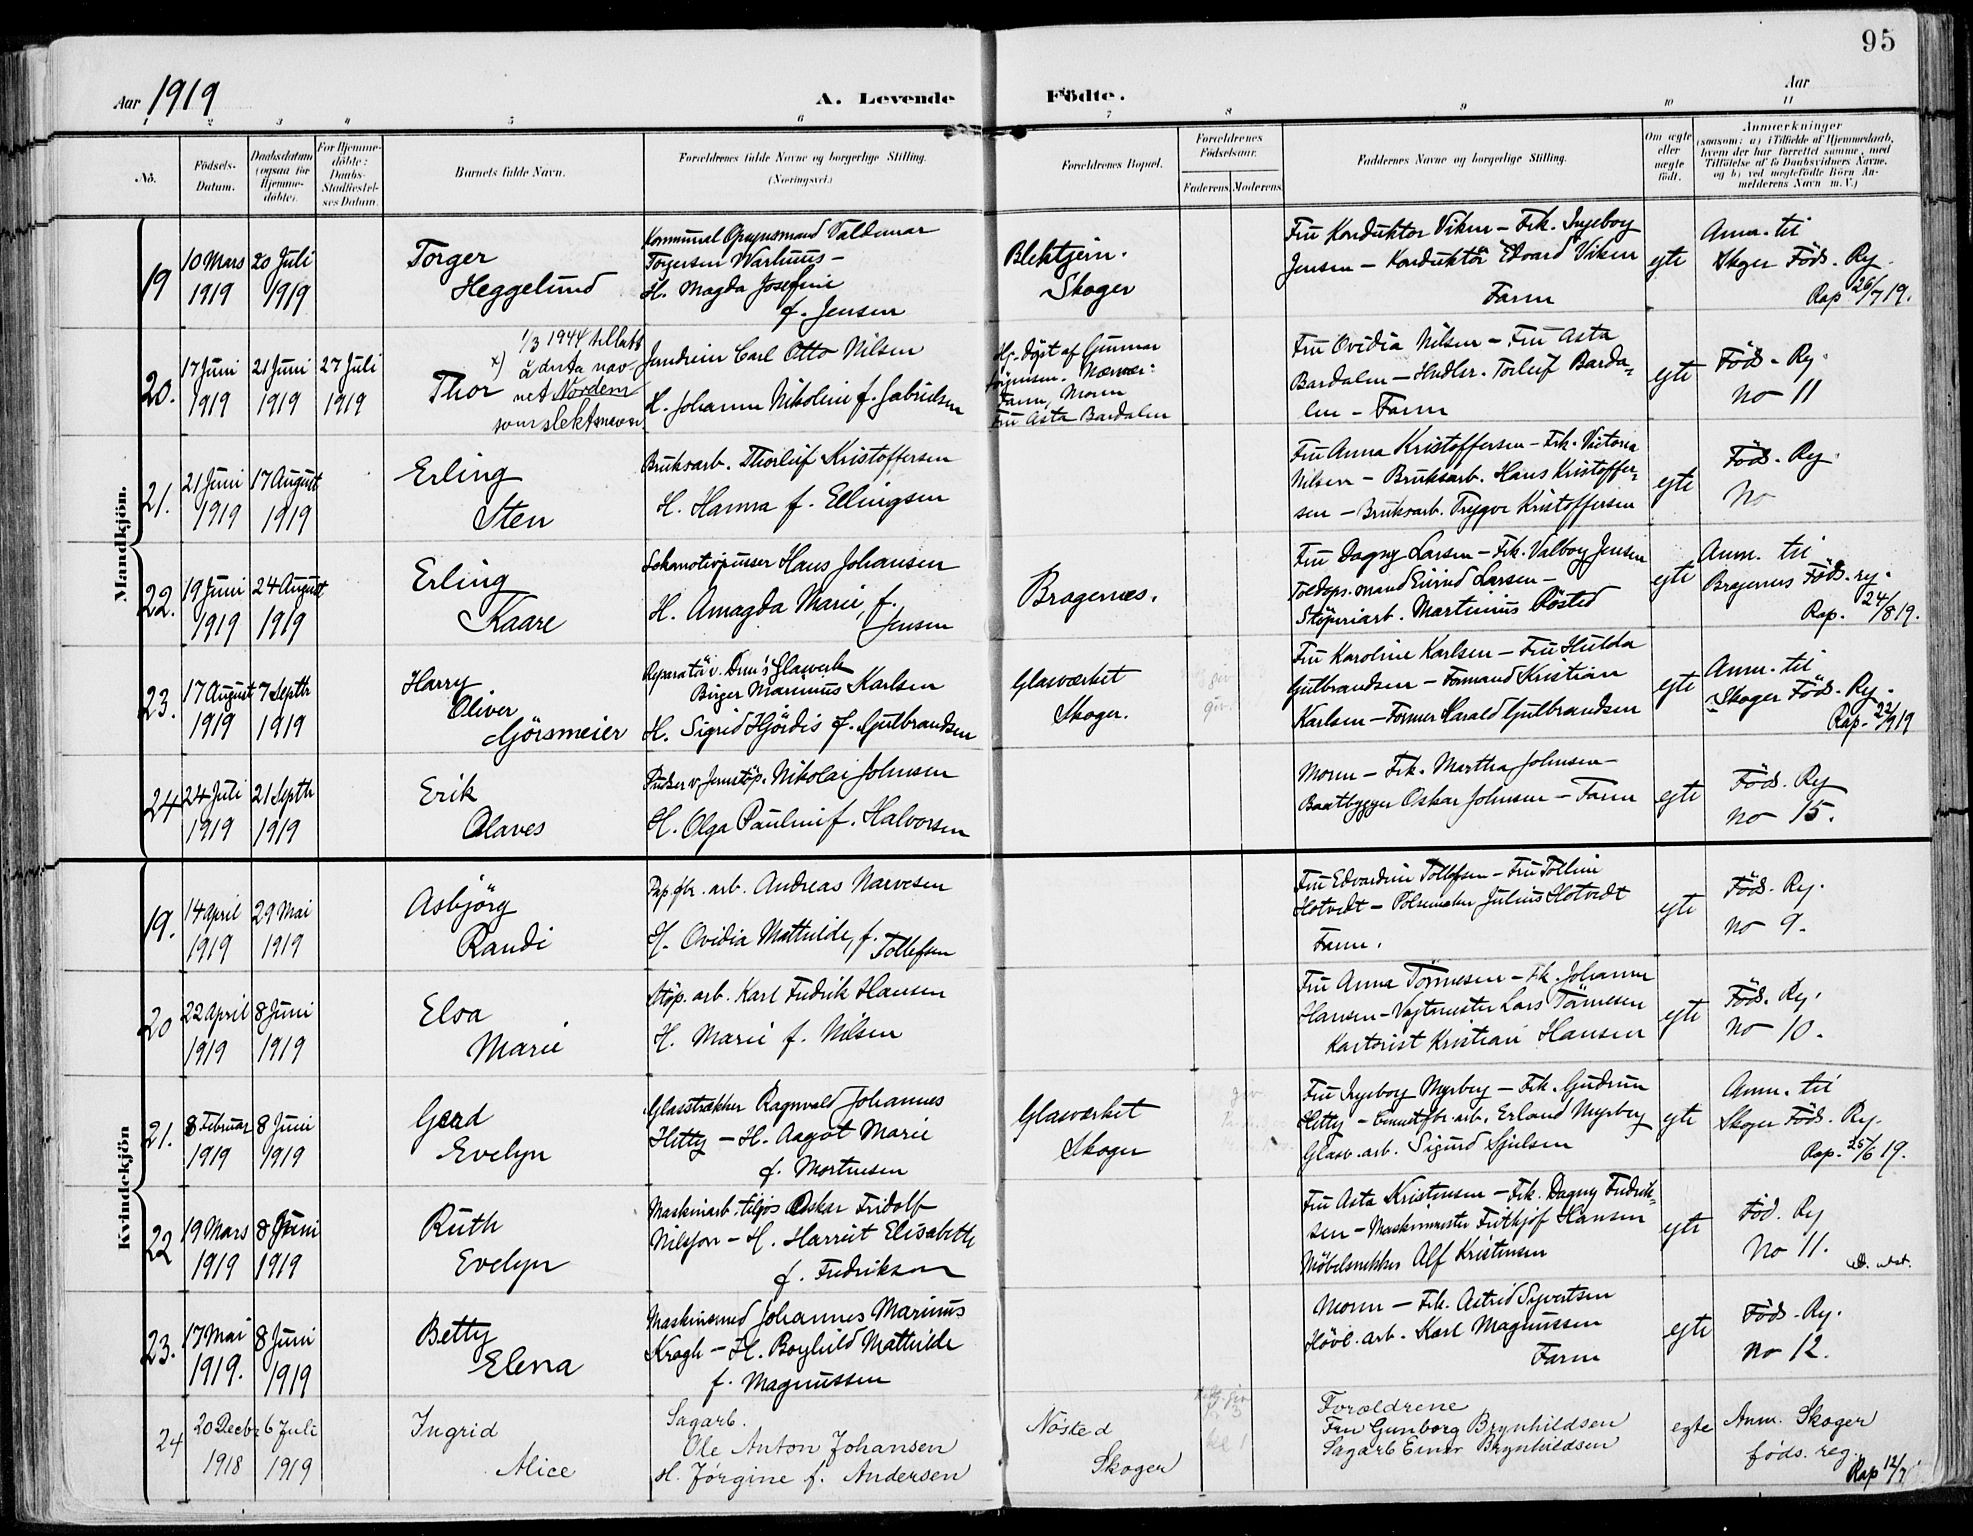 95
Aar 1919
A. Levende Födte.
Aar
1 2 3 4 5 6 7 8 9 10 11
No.
Födsels-Datum.
Daabsdatum (ogsaa for Hjemmedöbte).
For Hjemmedöbte: Daabs-Stadfæstelses Datum.
Barnets fulde Navn.
Forældrenes fulde Navne og borgerlige Stilling.
(Næringsvei.)
Forældrenes Bopæl.
Forældrenes Födselsaar.
Faderens. Moderens.
Faddernes Navne og borgerlige Stilling.
Om ægte eller uægte födt.
Anmærkninger
(saasom: a) i Tilfælde af Hjemmedaab, hvem der har forrettet samme, med Tilföielse af to Daabsvidners Navne, og b) ved uægtefödte Börn Anmelderens Navn m. V.)
Mandkjön.
19 10 Mars 1919 20 Juli 1919
Torger
Heggelund
Kommunal Opsynsmand Valdemar
Torgersen Warhuus -
H. Magda Josefine
f. Jensen
Blektjern.
Skoger
Fru Konduktor Viken - Frk. Ingeborg
Jensen - Konduktör Edvard Viken
Farm
egte
Anm. til
Skger Föds. Rg.
Rap 26/7 19.
20. 17 Juni 1919 21 Juni 1919 27 Juli 1919
x) 1/3 1944 tillatt
å dnta nav-
net Nordem
som slektsnavn
Thor
Jerndreier Carl Otto Nilsen
H. Johanne Nikoline f. Gabrielsen
Hj. döpt af Gunnar
Jörgensen. Nærvær:
Farm, Morm
Fru Asta Bardalen
Fru Ovidia Nilsen - Fru Asta
Bardalen - Hndler. Torleif Barda-
len - Farm
egte
Föds. Rg.
No 11
21. 21 Juni 1919 17 August 1919
Erling
Sten
Bruksarb. Thorleif Kristoffersen
H. Hanna f. Ellingsen
Fru Anna Kristoffersen - Frk. Victoria
Nilsen - Bruksarb. Hans Kristoffer-
sen - Bruksarb. Trygve Kristoffersen
egte
Föds. Rg.
No
22. 19 Juni 1919 24 August 1919
Erling
Kaare
Lokomotivpusser Hans Johansen
H. Amagda Marie, f.
Jensen
Bragernæs.
Fru Dagny Larsen - Frk. Valborg Jensen
Toldops.mand Eivind Larsen -
Støperiarb. Martinius Røsted
egte
Anm. til
Bragernes Föds. rg.
Rap. 24/8 19.
23. 17 August 1919 7 Septbr 1919
Harry
Oliver
Gjörsmeier
Reparatör v. Drm's Glasverk
Birger Marinius Karlsen
H. Sigrid Hjördis f. Gulbrandsen
Glasværket
Skoger.
Fru Karoline Karlsen - Fru Hulda
Gulbrandsen - Formand Kristian
Karlsen - Former Harald Gulbrandsen
egte
Anm. til
Skoger Föds. Rg.
Rap. 22/9 19
24 24 Juli 1919 21 Septbr 1919
Erik
Olaves
Pudser v. Jernstöp. Nikolai Johnsen
H. Olga Pauline f. Halvorsen
Morm - Frk. Martha Johnsen -
Baatbygger Oskar Johnsen - Farm
egte
Föds. Rg
No 15.
Kvindekjön
19. 14 April 1919 29 Mai 1919
Asbjörg
Randi
Papfbr. arb. Andreas Narvesen
H. Ovidia Mathilde, f.
Tollefsen
Fru Edvardine Tollefsen - Fru Tolline
Hotvedt - Pölsemaker Julius Hotvedt
Farm.
egte
Föds. Rg.
No 9.
20 22 April 1919 8 Juni 1919
Elva
Marie
Stöp. arb. Karl Fredrik Hansen
H. Marie f. Nilsen
Fru Anna Törmesen - Frk. Johanne
Hansen - Vagtmester Lars Törmesen
Kartorist Kristian Hansen
egte
Föds. Rg.
No 10.
21. 8 Februar 1919 8 Juni 1919
Gerd
Evelyn
Glasstrækker Ragnvald Johannes
Hitty - H. Aagot Marie
f. Mortensen
Glasværket
Skoger
Fru Ingeborg Myrberg - Frk. Gudrun
Hitty - arb. Erland Myrberg
Glasv. arb. Sigurd Gjulsen
egte
Anm. til
Skoger Föds. Rg.
Rap. 25/6 19.
22 19 Mars 1919 8 Juni 1919
Ruth
Evelyn
Maskinarb. Oskar Fridolf
Nilsson - H. Harriet Elisabeth
f. Fredrikson
Fru Asta Kristensen - Frk. Dagny Fredrik-
sen - Maskinmester Frithjof Hansen
Möbelsnekker Alf Kristensen
egte
Föd. Rg
No 11.
23. 17 Mai 1919. 8 Juni 1919
Betty
Elena
Maskinsmed Johannes Marinus
Kragh - H. Borghild Mathilde
f. Magnussen
Morm - Frk. Astrid Syvertsen
Hövl. arb. Karl Magnussen
Farm
egte
Föds. Rg.
No 12.
24 20 Decbr 1918 6 Juli 1919
Ingrid
Alice
Sagarb.
Ole Anton Johansen
H. Jørgine f. Andersen
Nøsted
Skoger
Forældrene
Fru Gunborg Brynhildsen
Sagarb Einar Brynhildsen
egte
Anm. Skoger
føds. reg.
Rap 12/7